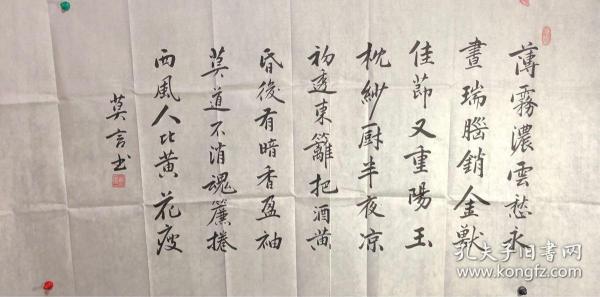 薄霧濃雲愁永
晝瑞腦銷金獸
佳節又重陽玉
枕紗厨半夜凉
初透東籬把酒黄
昏後有暗香盈袖
莫道不消魂簾捲
西風人比黄花瘦
莫言书
孔夫子旧书网
www.kongfz.com